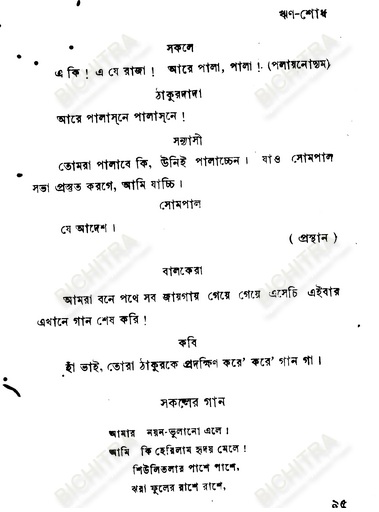 ঋণ-শোধ
সকলে
এ কি! এ যে রাজা! আরে পালা, পালা! (পলায়নোদ্যম)
ঠাকুরদাদা
আরে পালাস্‌নে পালাস্‌নে!
সন্ন্যাসী
তোমরা পালাবে কি, উনিই পালাচ্চেন। যাও সোমপাল
সভা প্রস্তুত করগে, আমি যাচ্চি।
সোমপাল
যে আদেশ।
(প্রস্থান)
বালকেরা
আমরা বনে পথে সব জায়গায় গেয়ে গেয়ে এসেচি এইবার
এখানে গান শেষ করি!
কবি
হাঁ ভাই, তোরা ঠাকুরকে প্রদক্ষিণ করে' করে' গান গা।
সকলের গান
আমার নয়ন-ভুলানো এলে!
আমি কি হেরিলাম হৃদয় মেলে!
শিউলিতলার পাশে পাশে,
ঝরা ফুলের রাশে রাশে,
৯৫
BICHITRA
BICHITRA
BICHITRA
BICHITRA
BICHITRA
BICHITRA
BICHITRA
BICHITRA